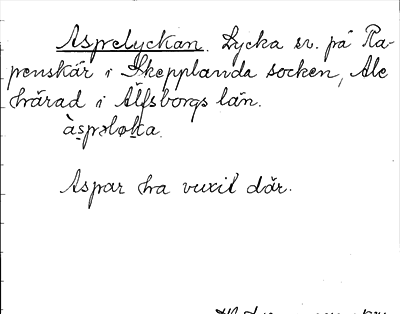 Asprelyckan. Lycka sv. på Ra-
penskär i Skepplanda socken, Ale
härad i Älfsborgs län.
àsprləka.
Aspar ha vuxit där.